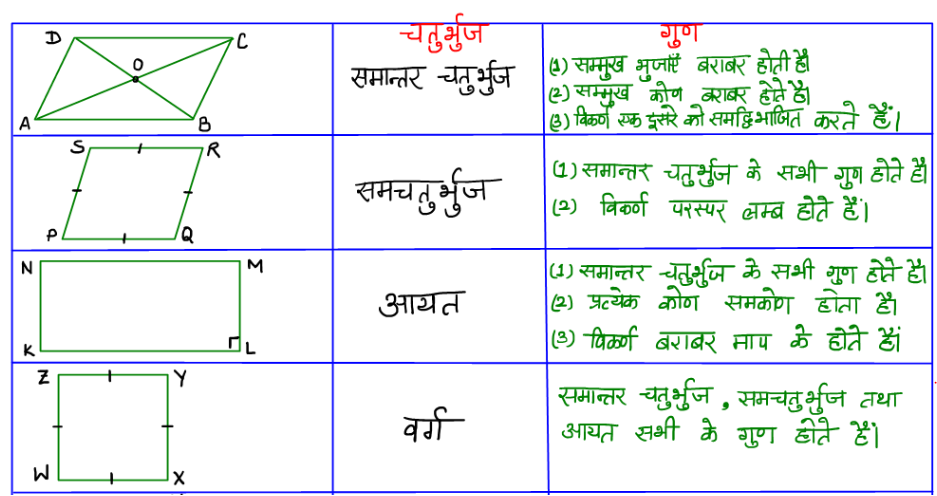 चतुर्भुज
गुण
D
C
O
A
B
समान्तर चतुर्भुज
(1) सम्मुख भुजाएँ बराबर होती हैं।
(2) सम्मुख कोण बराबर होते हैं।
(3) विकर्ण एक दूसरे को समद्विभाजित करते हैं।
S
R
P
Q
समचतुर्भुज
(1) समान्तर चतुर्भुज के सभी गुण होते हैं।
(2) विकर्ण परस्पर लम्ब होते हैं।
N
M
K
L
आयत
(1) समान्तर चतुर्भुज के सभी गुण होते हैं।
(2) प्रत्येक कोण समकोण होता है।
(3) विकर्ण बराबर माप के होते हैं।
Z
Y
W
X
वर्ग
समान्तर चतुर्भुज, समचतुर्भुज तथा
आयत सभी के गुण होते हैं।